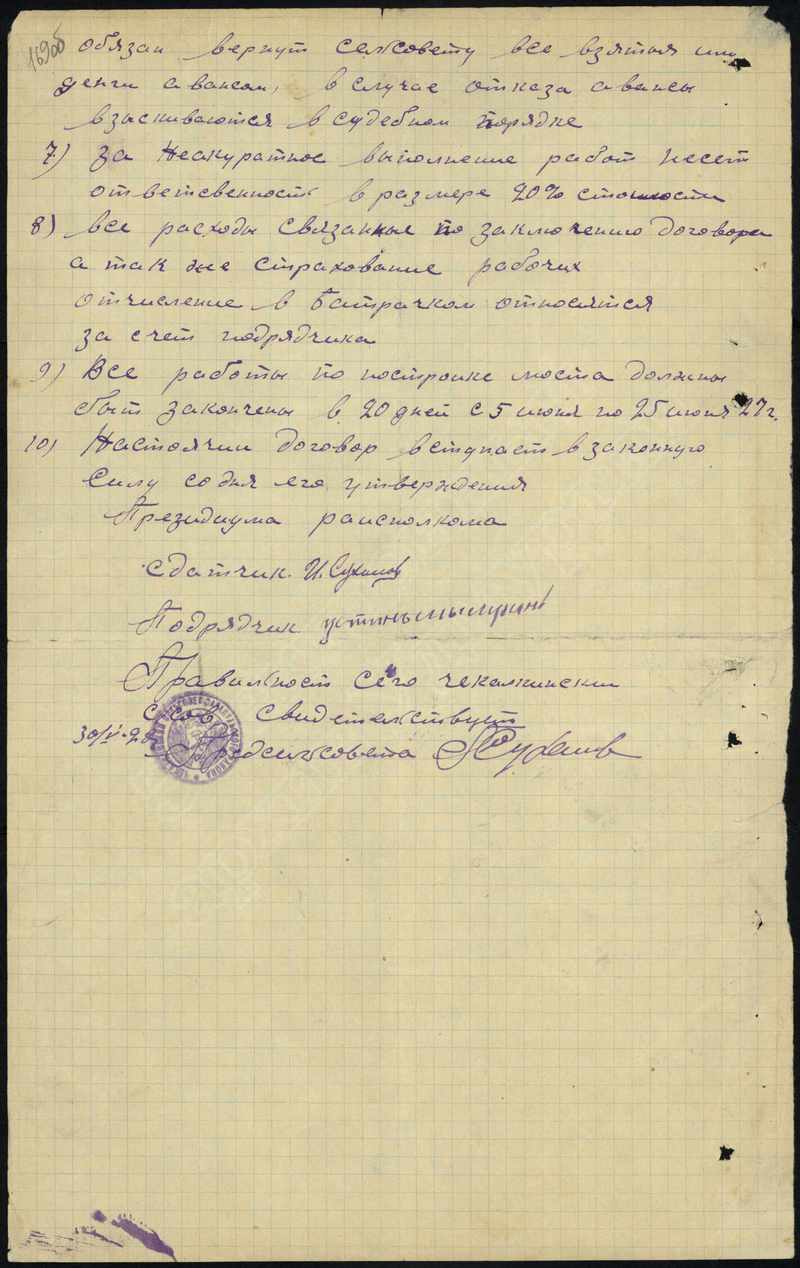 169об
обязан вернут сельсовету все взятыя им
денги авансом, в случае отказа авансы
взыскиваются в судебном порядке
7) за неакуратное выполнение работ несет
ответсвенность в размере 20% стоимости
8) все расходы связанные по заключению договора
а так же страхование рабочих
отчисление в батрачком относятся
за счет подрядчика
9) Все работы по постройке моста должны
быт закончены в 20 дней с 5 июня по 25 июня 27 г.
10) Настоячии договор вступает в законную
силу со дня его утверждения
Президиума раисполкома
сдатчик. И. Суханов
Подрядчик устинь
Правильност сего чекалкинскии
свидетельствует
30/V-28
Предсельсовета Суханов